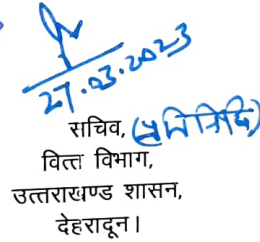 27.03.2023
सचिव, (प्रतिनिधि)
वित्त विभाग,
उत्तराखण्ड शासन,
देहरादून।